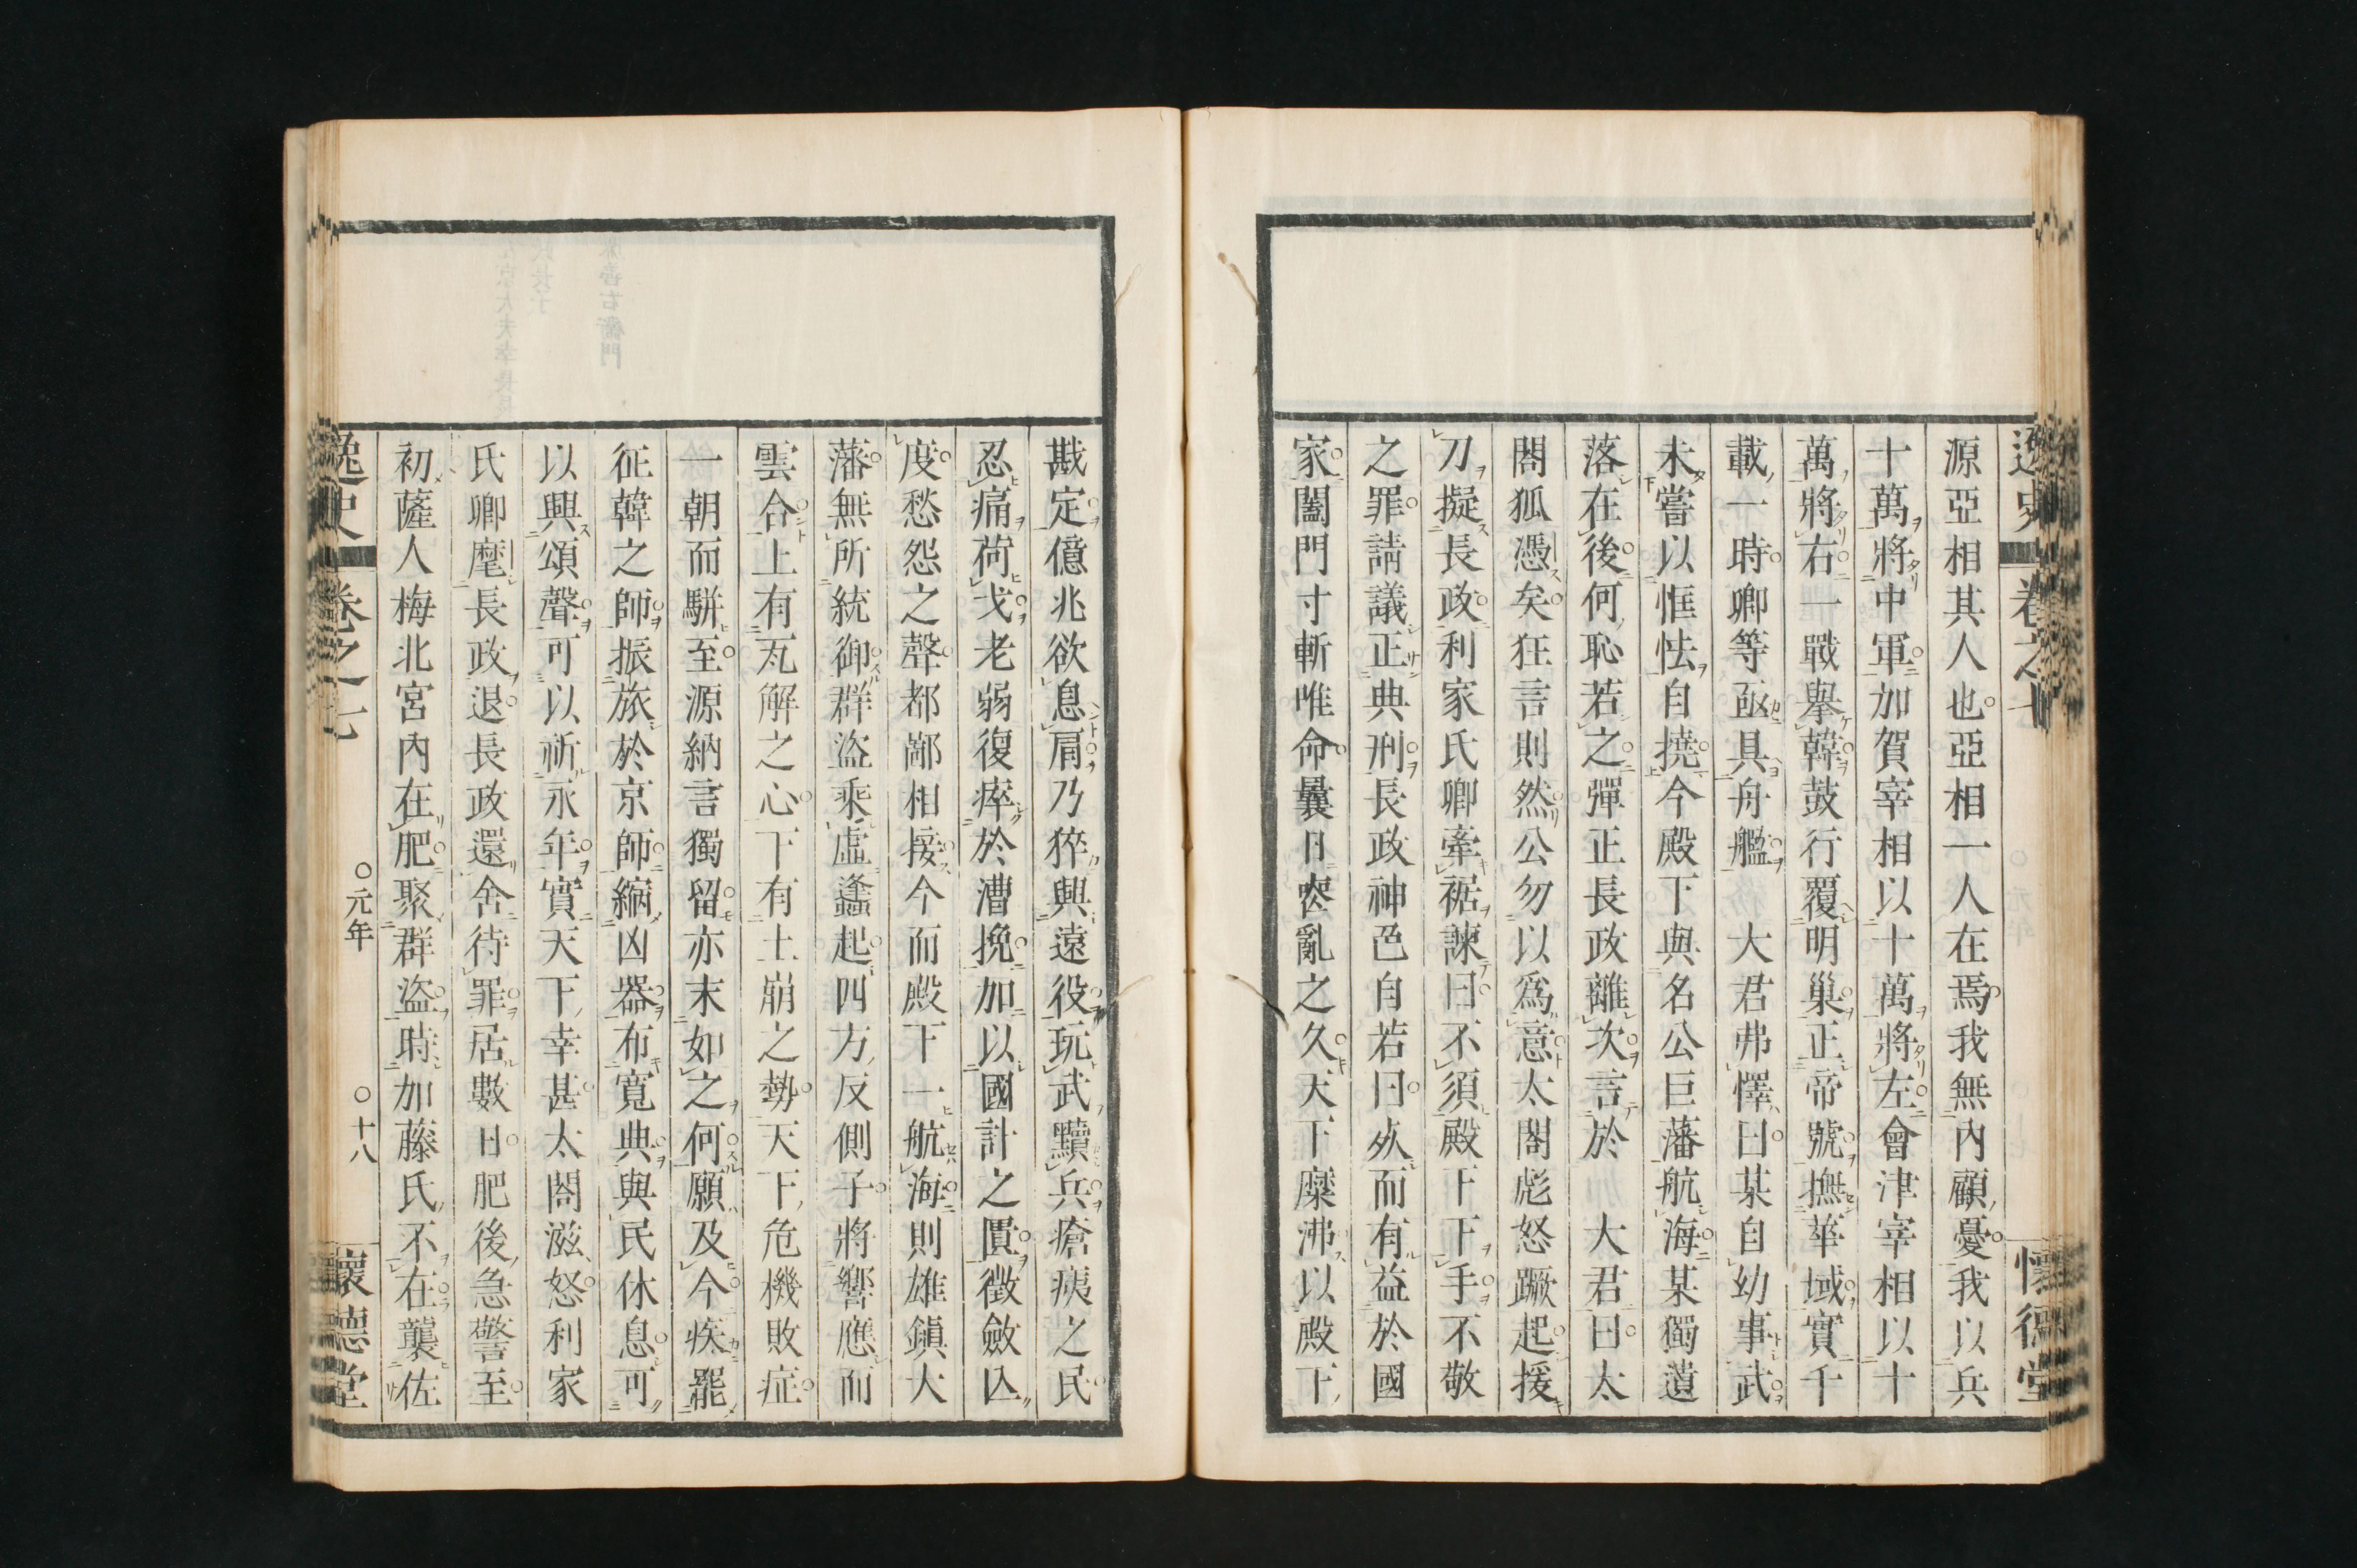 逸史 卷之七 懷德堂
源亞相其人也亞相一人在焉我無內顧憂我以兵
十萬將中軍加賀宰相以十萬將左會津宰相以十
萬將右一戰舉韓鼓行覆明巢正帝號撫華域實千
載一時卿等亟具舟艦 大君弗懌曰某自幼事武
未嘗以恇怯自撓今殿下與名公巨藩航海某獨遺
落在後何恥若之彈正長政離次言於 大君曰太
閤狐憑矣狂言則然公勿以爲意太閤彪怒蹶起援
刀擬長政利家氏卿牽裾諫曰不須殿下下手不敬
之罪請議正典刑長政神色自若曰死而有益於國
家闔門寸斬唯命曩日喪亂之久天下糜沸以殿下
戡定億兆欲息肩乃猝興遠役玩武黷兵瘡痍之民
忍痛荷戈老弱復瘁於漕挽加以國計之匱徵斂亾
度愁怨之聲都鄙相接今而殿下一航海則雄鎮大
藩無所統御群盜乘虛蠭起四方反側子將響應而
雲合上有瓦解之心下有土崩之勢天下危機敗症
一朝而駢至源納言獨留亦末如之何願及今疾罷
征韓之師振旅於京師縮凶器布寬典與民休息可
以興頌聲可以祈永年實天下幸甚太閤滋怒利家
氏卿麾長政退長政還舍待罪居數日肥後急警至
初薩人梅北宮內在肥聚群盜時加藤氏不在襲佐
逸史 卷之七 ○元年 ○十八 懷德堂